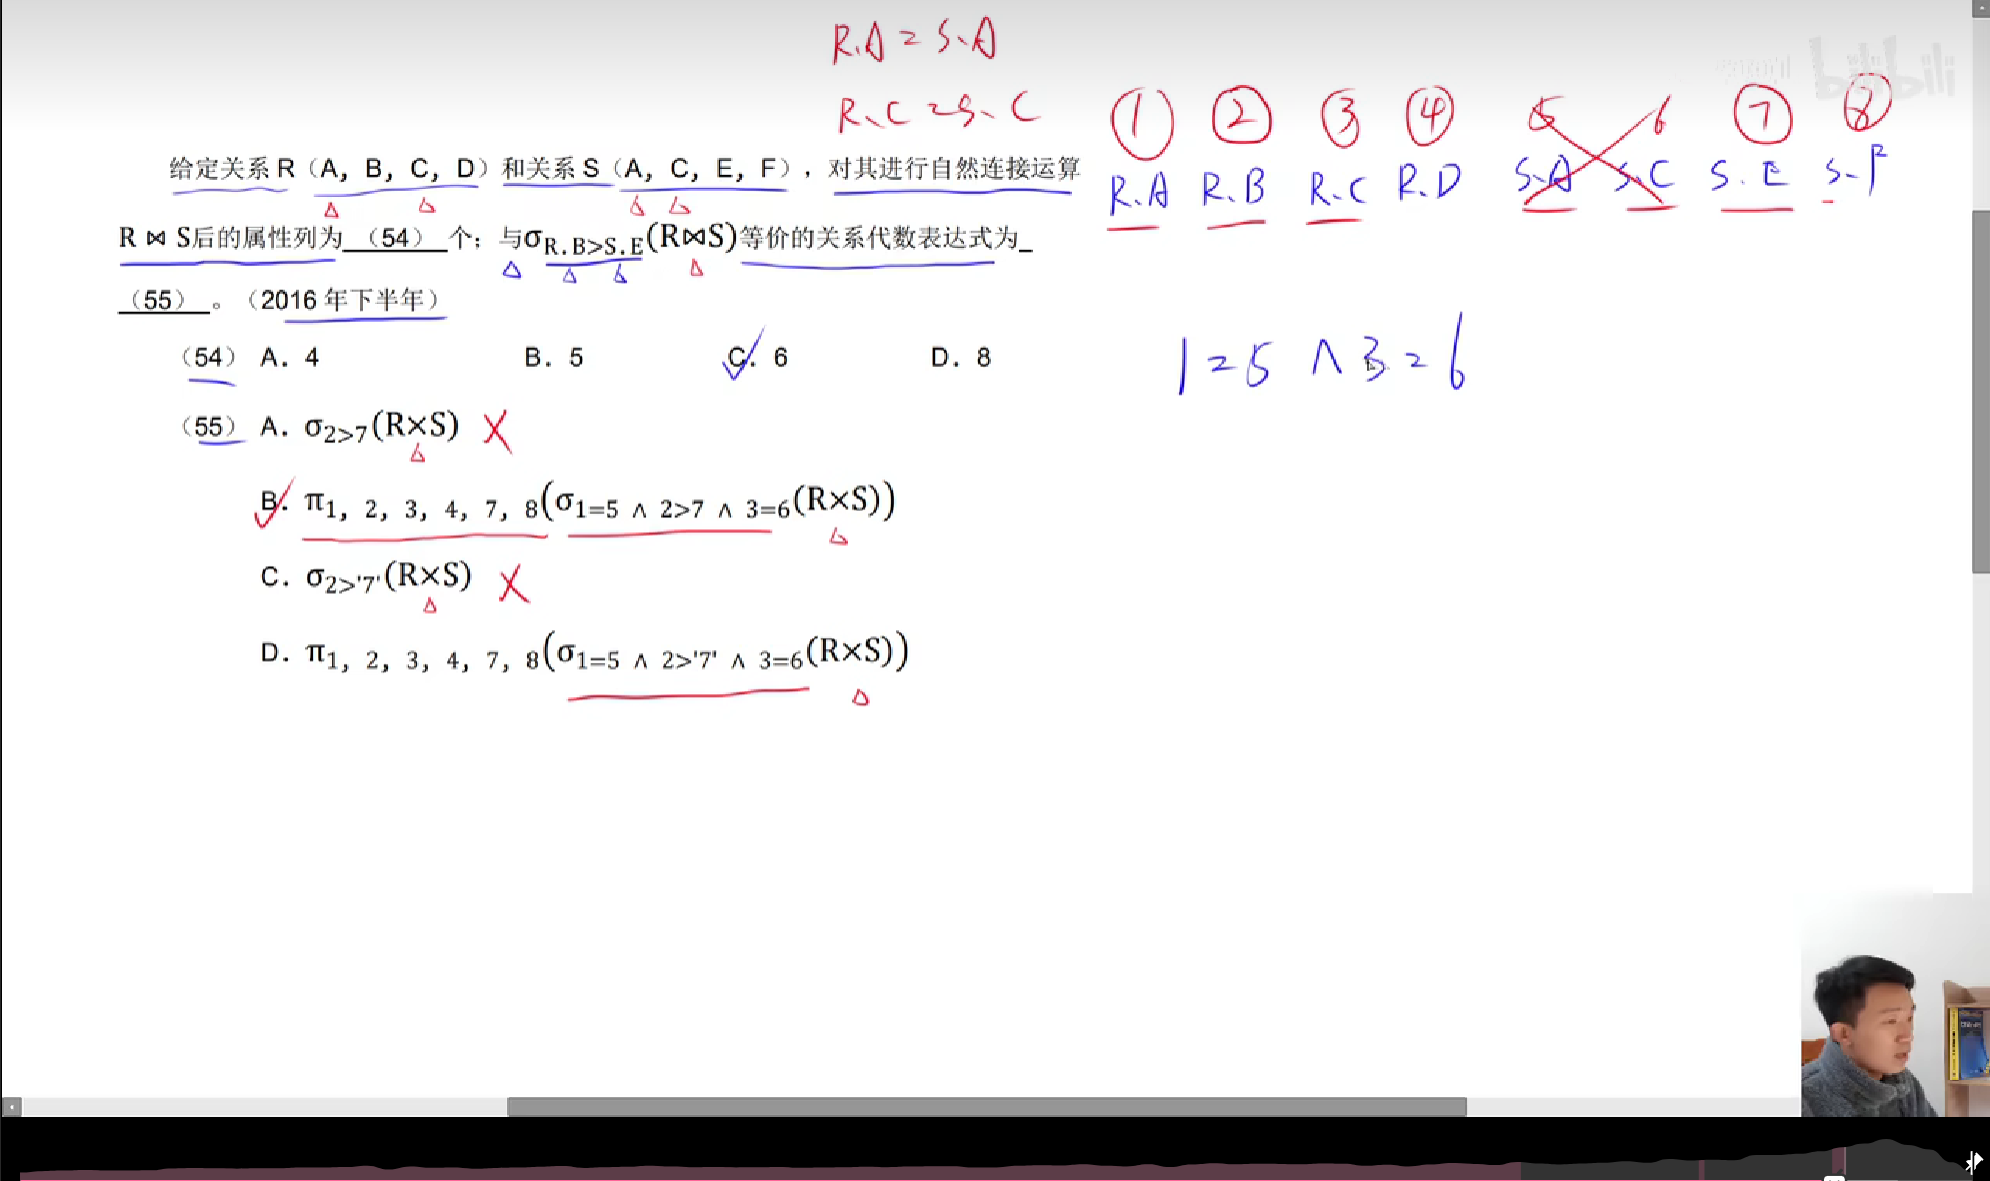 R.A=S.A
R.C=S.C
① ② ③ ④ 5 6 ⑦ ⑧
R.A R.B R.C R.D S.A S.C S.E S.F
bilibili
给定关系 R（A，B，C，D）和关系 S（A，C，E，F），对其进行自然连接运算
R ⋈ S后的属性列为 （54） 个；与σR.B>S.E(R⋈S)等价的关系代数表达式为_
（55） 。（2016 年下半年）
1=5 ∧ 3=6
（54） A．4 B．5 C．6 D．8
（55） A．σ2>7(R×S) X
B．π1，2，3，4，7，8(σ1=5 ∧ 2>7 ∧ 3=6(R×S))
C．σ2>'7'(R×S) X
D．π1，2，3，4，7，8(σ1=5 ∧ 2>'7' ∧ 3=6(R×S))